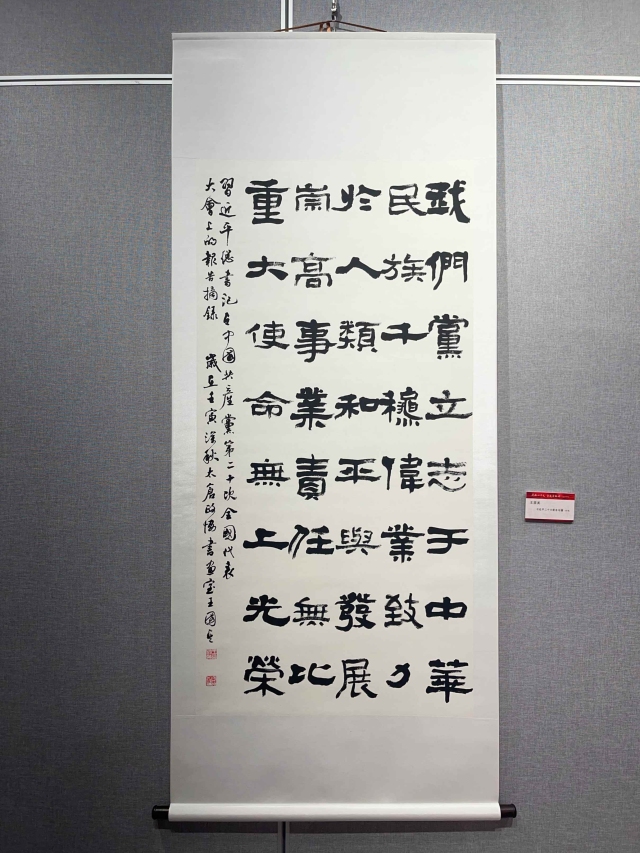 我們黨立志于中華
民族千穐偉業致力
於人類和平與發展
崇高事業責任無比
重大使命無上光榮
習近平總書記在中國共產黨第二十次全國代表
大會上的報告摘錄 歲在壬寅深秋太倉政協書畫室王國